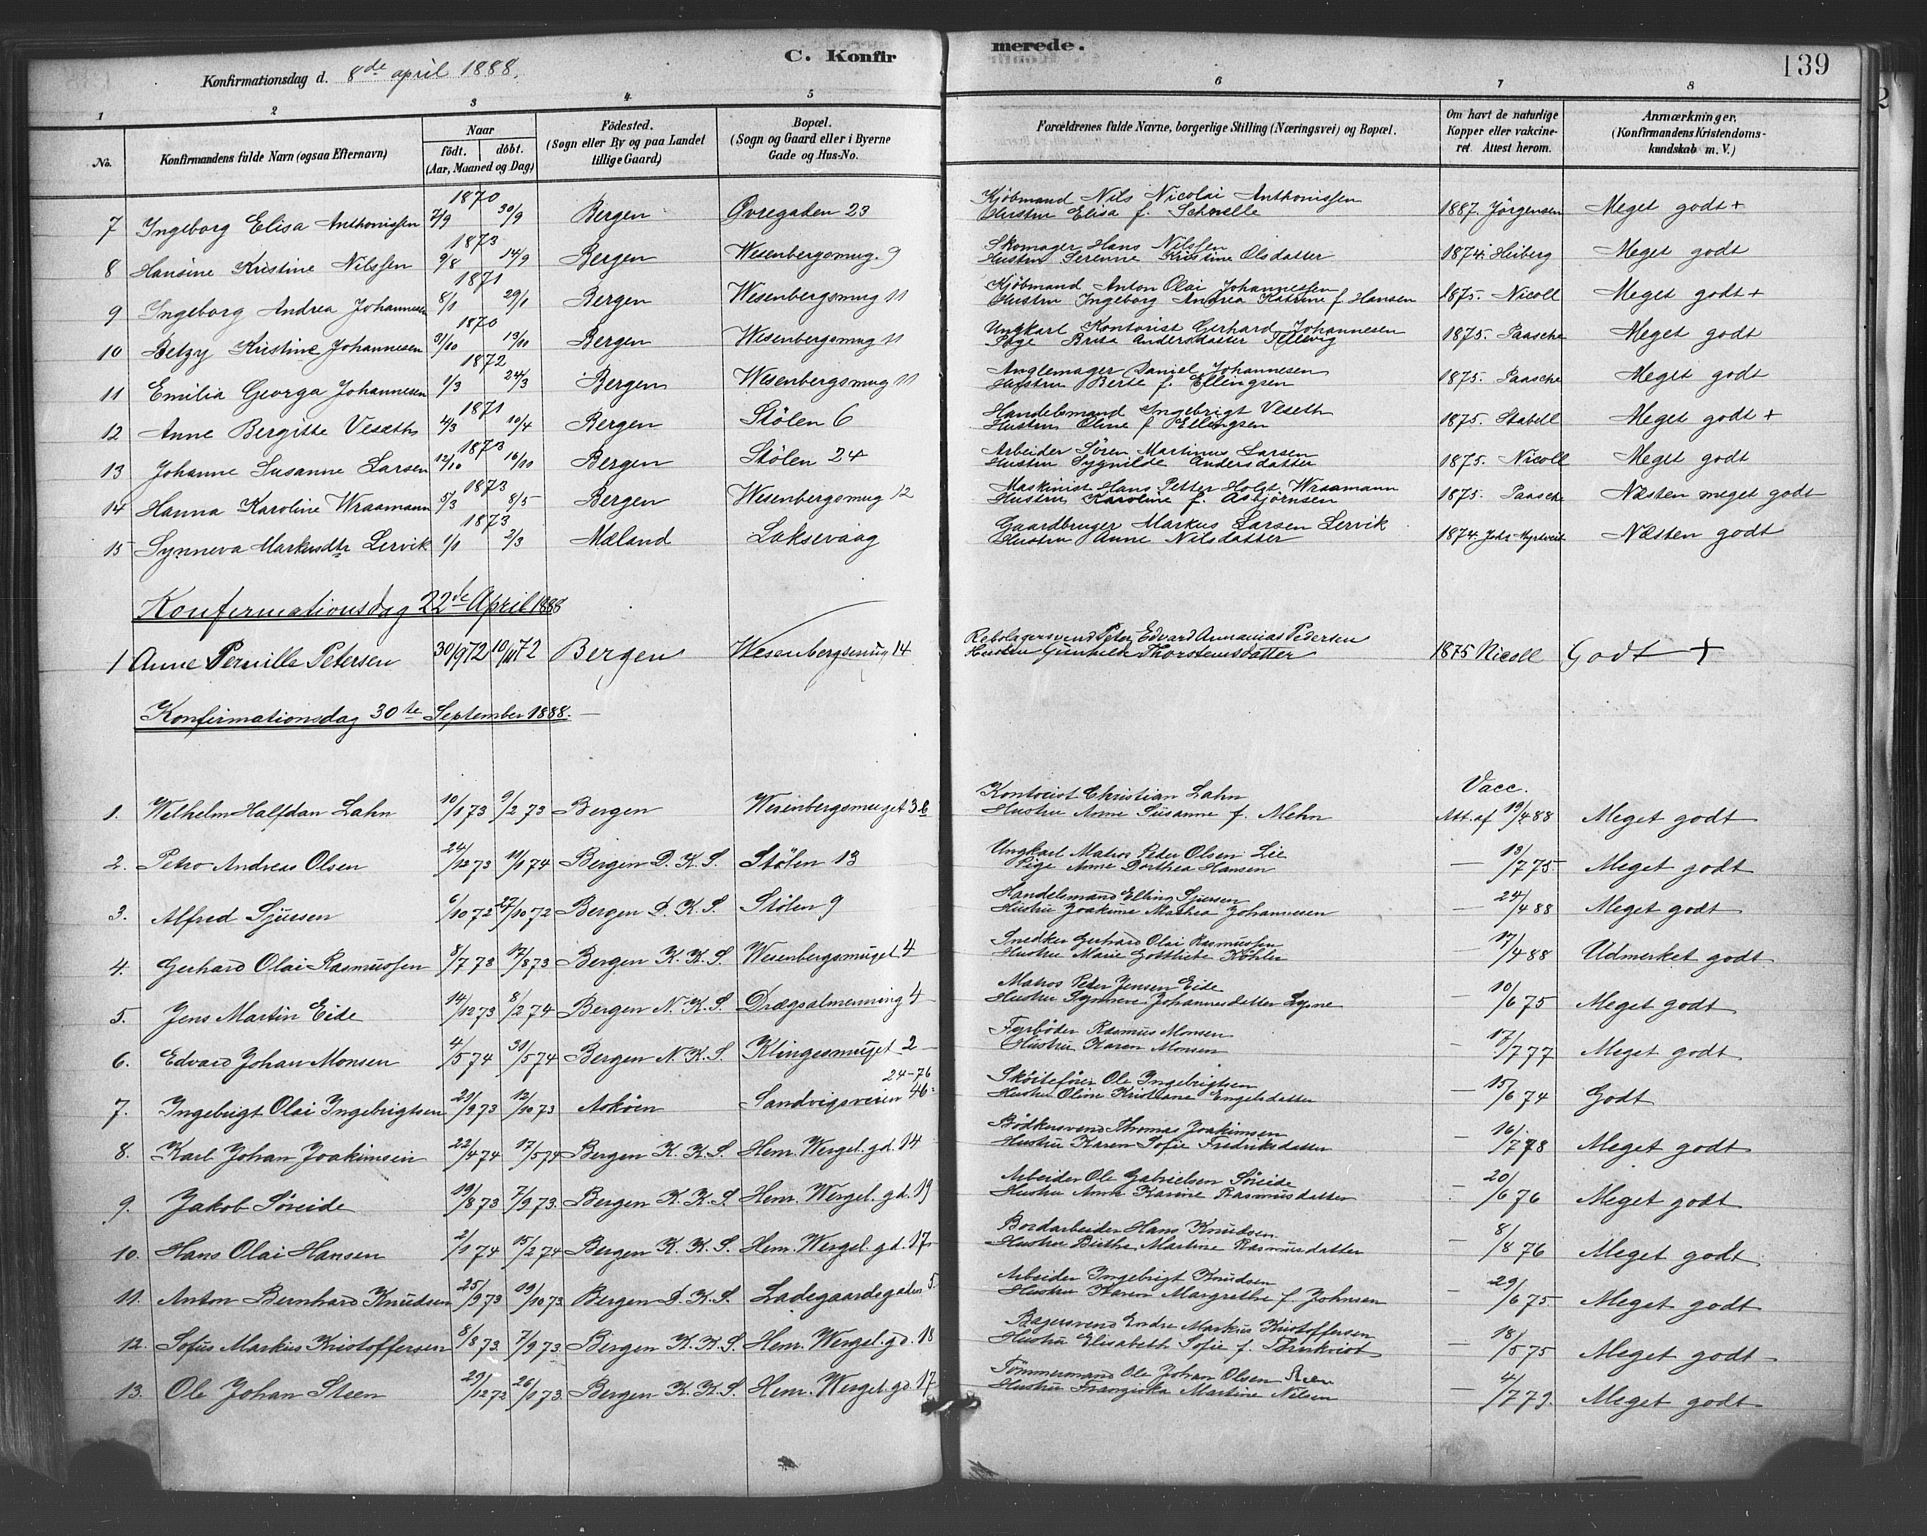 C. Konfirmerede. 139
Konfirmationsdag d. 8de april 1888.
1 2 3 4 5 6 7 8
No. Konfirmandens fulde Navn (ogsaa Efternavn) Naar født. døbt. (Aar, Maaned og Dag) Fødested. (Sogn eller By og paa Landet tillige Gaard) Bopæl. (Sogn og Gaard eller i Byerne Gade og Hus-No. Forældrenes fulde Navne, borgerlige Stilling (Næringsvei) og Bopæl. Om havt de naturlige Kopper eller vakcineret. Attest herom. Anmærkninger. (Konfirmandens Kristendomskundskab m. V.)
7 Ingeborg Elisa Anthonissen 1870 7/9 30/9 Bergen Øvregaden 23 Kjøbmand Nils Nicolai Anthonissen Hustru Elisa f. Schnelle 1887. Jörgensen Meget godt +
8 Hansine Kristine Nilssen 1873 9/8 14/9 Bergen Wesenbergsmug. 9 Skomager Hans Nilssen Hustru Serenne Kristine Olsdatter 1874. Heiberg Meget godt
9 Ingeborg Andrea Johannesen 1871 8/1 29/1 Bergen Wesenbergsmug 11 Kjøbmand Anton Olai Johannessen Hustru Ingeborg Andrea Katrine f Hansen 1875. Nicoll Meget godt +
10 Betzy Kristine Johannesen 1870 3/10 13/10 Bergen Wesenbergsmug 11 Ungkarl Kontorist Gerhard Johannesen Pige Brita Andersdatter Tellevig 1875. Paasche Meget godt
11 Emilia Georga Johannesen 1872 1/3 24/3 Bergen Wesenbergsmug 11 Anglemager Daniel Johannesen Hustru Berte f. Ellingsen 1875. Paasche Meget godt
12 Anne Bergitte Veseth 1871 4/3 10/4 Bergen Stølen 6 Handelsmand Ingebrigt Veseth Hustru Oline f Ellingsen 1875. Stabell Meget godt +
13 Johanne Susanne Larsen 1873 12/10 16/10 Bergen Stølen 24 Arbeider Sören Martinus Larsen Hustru Sygnilde Andersdatter 1875. Nicoll Meget godt
14 Hanna Karoline Wraamann 1873 5/3 8/5 Bergen Wesenbergsmug 12 Maskinist Hans Petter Holst Wraamann Hustru Karoline f. Asbjørnsen 1875. Paasche Næsten meget godt
15 Synneva Markusdtr Lervik 1873 1/1 2/3 Mæland Laksevaag Gaardbruger Markus Larsen Lervik Hustru Anne Nilsdatter 1874. Næsten godt
Konfirmationsdag 22de April 1888
1 Anne Pernille Petersen 30/9 72 10/11 72 Bergen Wesenbergsmug 14 Rebslagersvend Peter Edvard Annanias Pedersen Hustru Gunhilde Thorsteinsdatter 1875 Nicoll Godt +
Konfirmationsdag 30te September 1888.
1. Wilhelm Halfdan Lahn 10/1 73 9/2 73 Bergen Wesenbergsmuget 3b Kontorist Christian Lahn Hustru Anne Susanne f. Mehn Vacc. Att. af 19/4 88 Meget godt
2. Petro Andreas Olsen 24/12 73 11/1 74 Bergen D. K. S. Stølen 13 Ungkarl Matros Peder Olsen Lie Pige Anne Dorthea Hansen — 13/7 75. Meget godt
3. Alfred Sjursen 6/10 72 27/10 72 Bergen D. K. S. Stølen 9 Handelsmand Elling Sjursen Hustru Joakima Mathea Johannesen — 24/4 88 Meget godt
4. Gerhard Olai Rasmussen 8/7 73 17/8 73 Bergen K. K. S. Wesenbergsmuget 4 Snedker Gerhard Olai Rasmussen Hustru Marie Gottliebe Köhler — 17/4 88 Udmerket godt
5. Jens Martin Eide 14/12 73 8/2 74 Bergen N. K. S. Drægsalmenning 4 Matros Peter Jensen Eide Hustru Synneve Johannesdatter — 10/6 75 Meget godt
6. Edvard Johan Monsen 4/5 74 30/5 74 Bergen N. K. S. Klingesmuget 2 Fyrbøder Rasmus Monsen Hustru Karen Monsen — 17/7 77 Meget godt
7. Ingebrigt Olai Ingebrigtsen 21/9 73 12/10 73 Askøen 24-76 Sandvigsveien 46 Skøitefører Ole Ingebrigtsen Hustru Oline Kristiane Engelsdatter — 15/6 74 Godt
8. Karl Johan Joakimsen 22/4 74 17/5 74 Bergen K. K. S. Henr. Wergel. gd. 14 Bødkersvend Thomas Joakimsen Hustru Karen Sofie Fredriksdatter — 16/7 78 Meget godt
9. Jakob Søreide 19/8 73 7/9 73. Bergen K. K. S. Henr. Wergel. gd. 19 Arbeider Ole Gabrielsen Søreide Hustru Anna Karine Rasmusdatter 20/6 76 Meget godt
10. Hans Olai Hansen 2/1 74 15/2 74 Bergen K. K. S. Henr. Wergel. gd. 17 Bordarbeider Hans Knudsen Hustru Birthe Martine Rasmusdatter — 8/8 76 Meget godt
11. Anton Bernhard Knudsen 25/9 73 19/10 73 Bergen D. K. S. Ladegaardsgaden 5 Arbeider Ingebrigt Knudsen Hustru Karen Margrethe f. Johnsen — 29/6 75 Meget godt
12. Sofus Markus Kristoffersen 8/8 73. 7/9 73. Bergen K. K. S. Henr. Wergel. gd. 18 Bagersvend Endre Markus Kristoffersen Hustru Elisabeth Sofie f. — 18/5 75 Meget godt
13. Ole Johan Steen 29/12 72 26/1 73. Bergen K. K. S. Henr. Wergel. gd. 17 Tømmermand Ole Johan Olsen Hustru Franziska Martine Nilsen — 4/7 79. Meget godt